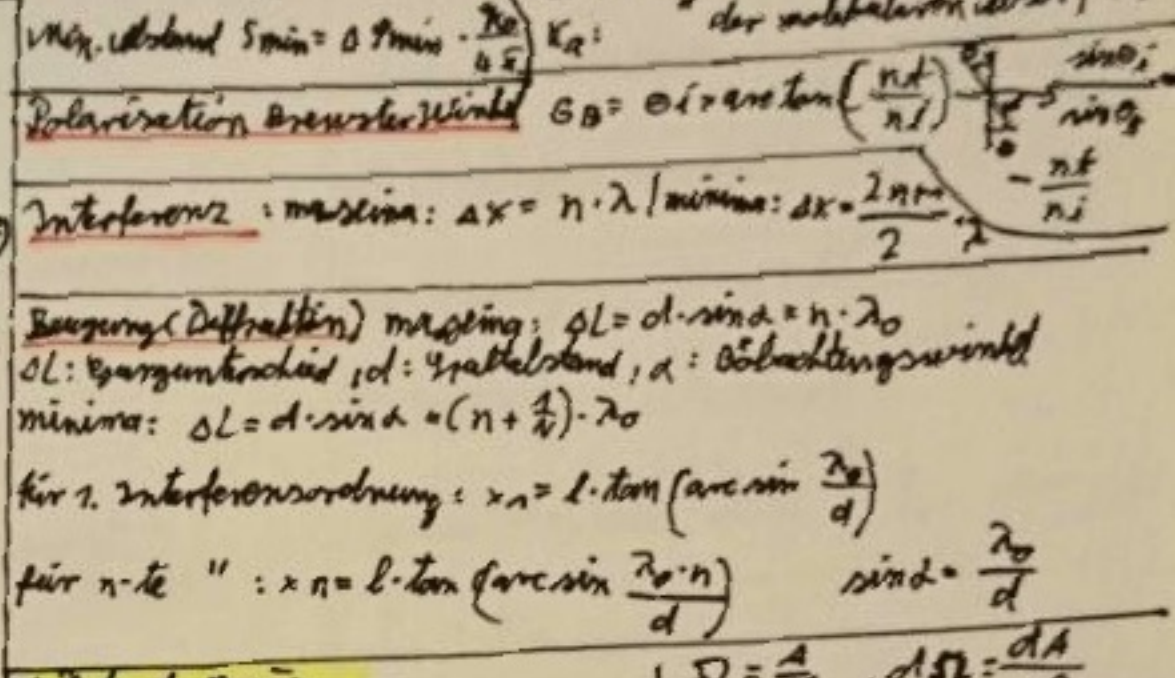 Min. abstand Smin = Δφmin · λ0/4π) Ka:
der molekularen
Polarisation Brewsterwinkel GB = Θi = arctan(nt/ni) sinΘi/sinΘt
= nt/ni
Interferenz : maxima: Δx = n·λ / minima: Δx = 2n+1/2 · λ
Beugung (Diffraktion) maxima: ΔL = d·sinα = n·λ0
ΔL: Gangunterschied, d: Spaltabstand, α: Beobachtungswinkel
minima: ΔL = d·sinα = (n + 1/N)·λ0
für 1. Interferenzordnung: x1 = l·tan(arc sin λ0/d)
für n-te " : xn = l·tan(arc sin λ0·n/d) sinα = λ0/d
Ω = A dΩ = dA